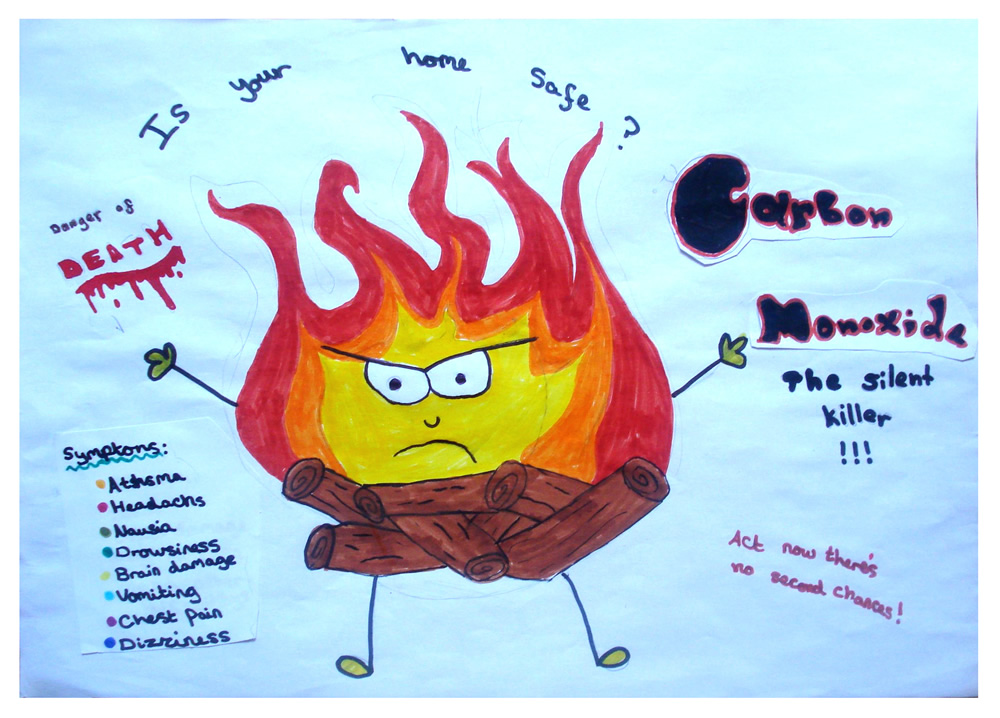 Is your home Safe ?
Danger of
DEATH
Carbon
Monoxide
The silent
killer
!!!
Symptons:
Athsma
Headachs
Nausia
Drowsiness
Brain damage
Vomiting
Chest Pain
Dizziness
Act now there's
no second chances!